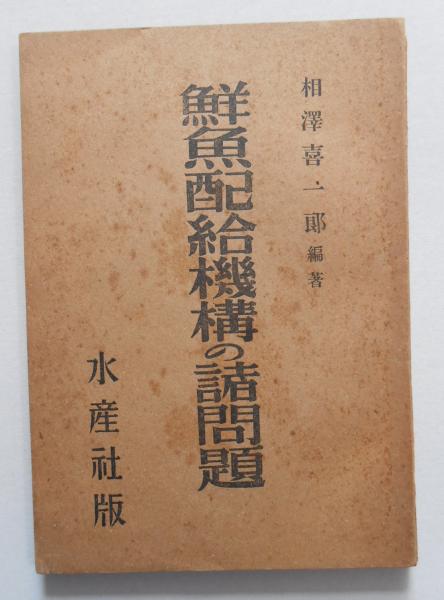 相澤喜一郎編著
鮮魚配給機構の諸問題
水産社版